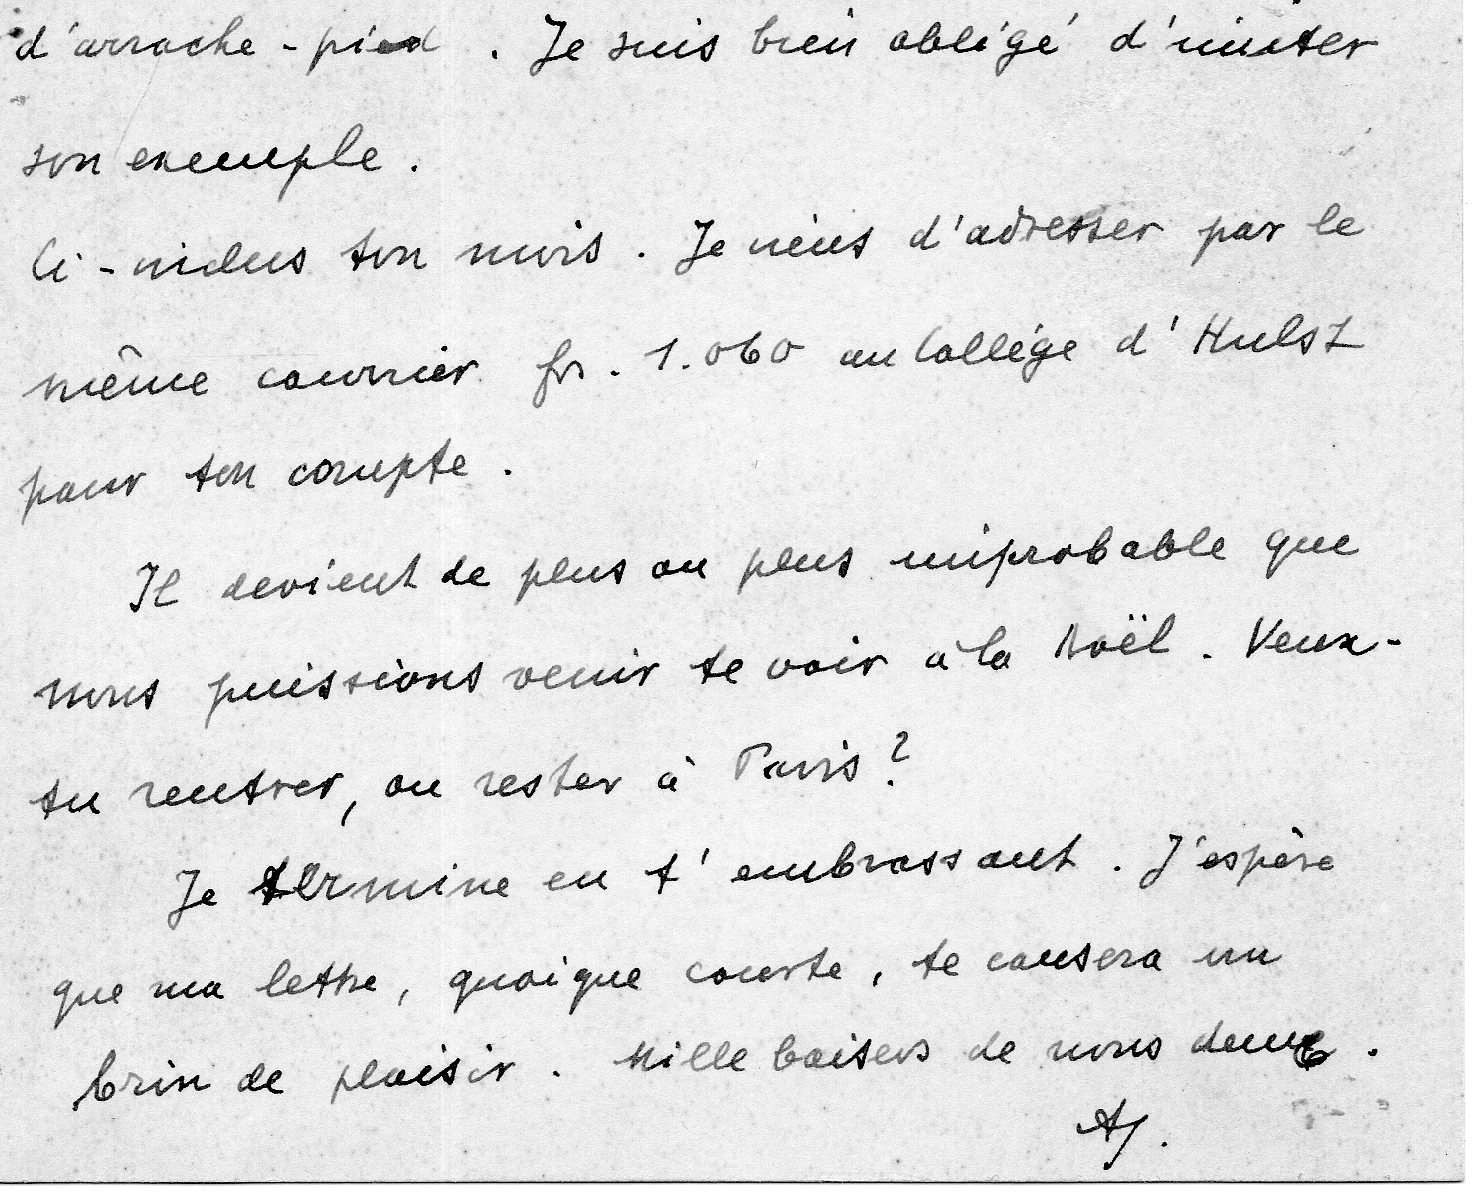 d'arrache-pied. Je suis bien obligé d'imiter
son exemple.
Ci-inclus ton mois. Je viens d'adresser par le
même courrier fr. 1.060 au Collège d'Hulst
pour ton compte.
Il devient de plus en plus improbable que
nous puissions venir te voir à la Noël. Veux-
tu rentrer, ou rester à Paris?
Je termine en t'embrassant. J'espère
que ma lettre, quoique courte, te causera un
brin de plaisir. Mille baisers de nous deux.